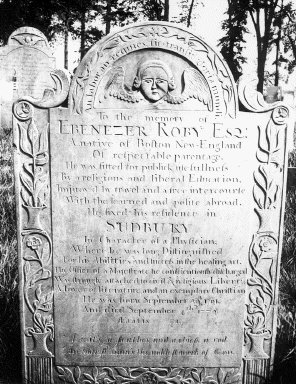 To the memory of
EBENEZER ROBY ESQ:
A native of Boston New-England
Of respectable parentage.
He was fitted for publick usefullness
By a religious and liberal Education,
Improv'd by travel and a free intercourse
With the learned and polite abroad.
He fixed his residence in
SUDBURY
In Character of a Physician;
Where he was long Distinguished
For his Abilities and success in the healing art.
The Office of a Magistrate he conscientiously discharged
Was strongly attached to civil & religious Liberty
Lover of literature and an exemplary Christian
He was born September
And died September
Ætatis